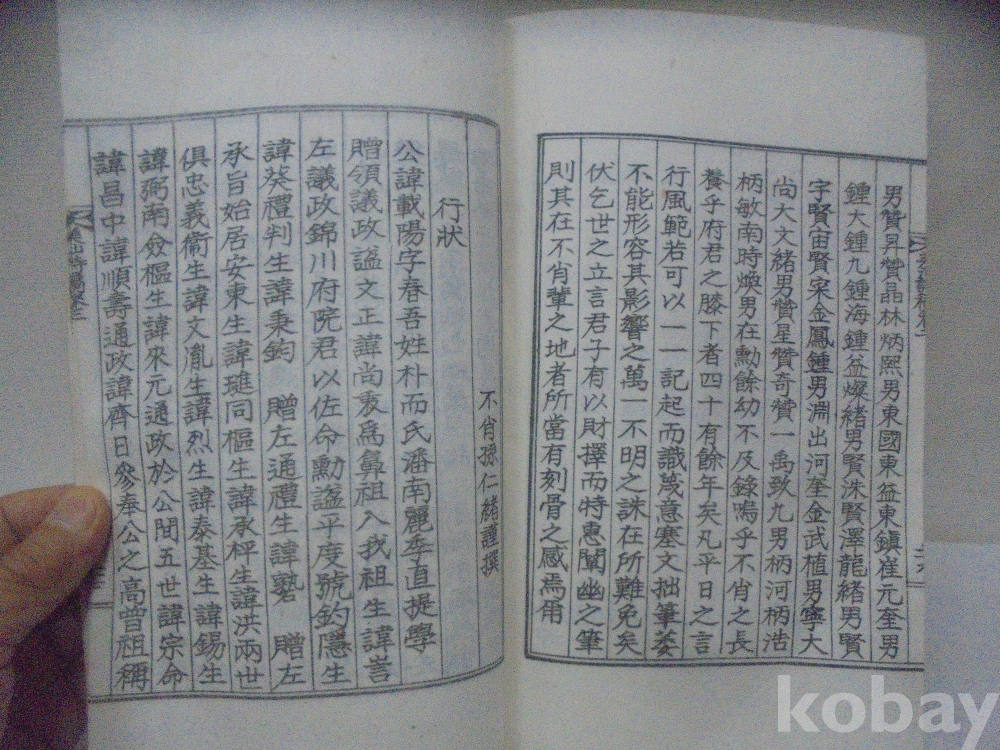 男贊昇贊晶林炳熙男東國東益東鎭崔元奎男
鍾大鍾九鍾海鍾益燦緒男賢洙賢澤龍緒男賢
字賢宙賢宋金鳳鍾男淵出河奎金武植男寧大
尚大文緒男贊星贊奇贊一禹致九男柄河柄浩
柄敏南時煥男在勳餘幼不及錄嗚乎不肖之長
養乎府君之膝下者四十有餘年矣凡平日之言
行風範若可以一一記起而識蔑意塞文拙筆萎
不能形容其影響之萬一不明之誅在所難免矣
伏乞世之立言君子有以財擇而特惠闡幽之筆
則其在不肖輩之地者所當有刻骨之感焉甭
不肖孫仁緒謹撰
行狀
公諱載陽字春吾姓朴而氏潘南麗季直提學
贈領議政謚文正諱尚衷爲鼻祖入我祖生諱訔
左議政錦川府院君以佐命勳謚平度號釣隱生
諱葵禮判生諱秉鈞 贈左通禮生諱 贈左
承旨始居安東生諱璡同樞生諱承枰生諱洪兩世
俱忠義衛生諱文胤生諱烈生諱泰基生諱錫生
諱弼南僉樞生諱來元通政於公間五世諱宗命
諱昌中諱順壽通政諱齊日參奉公之高曾祖禰
kobay